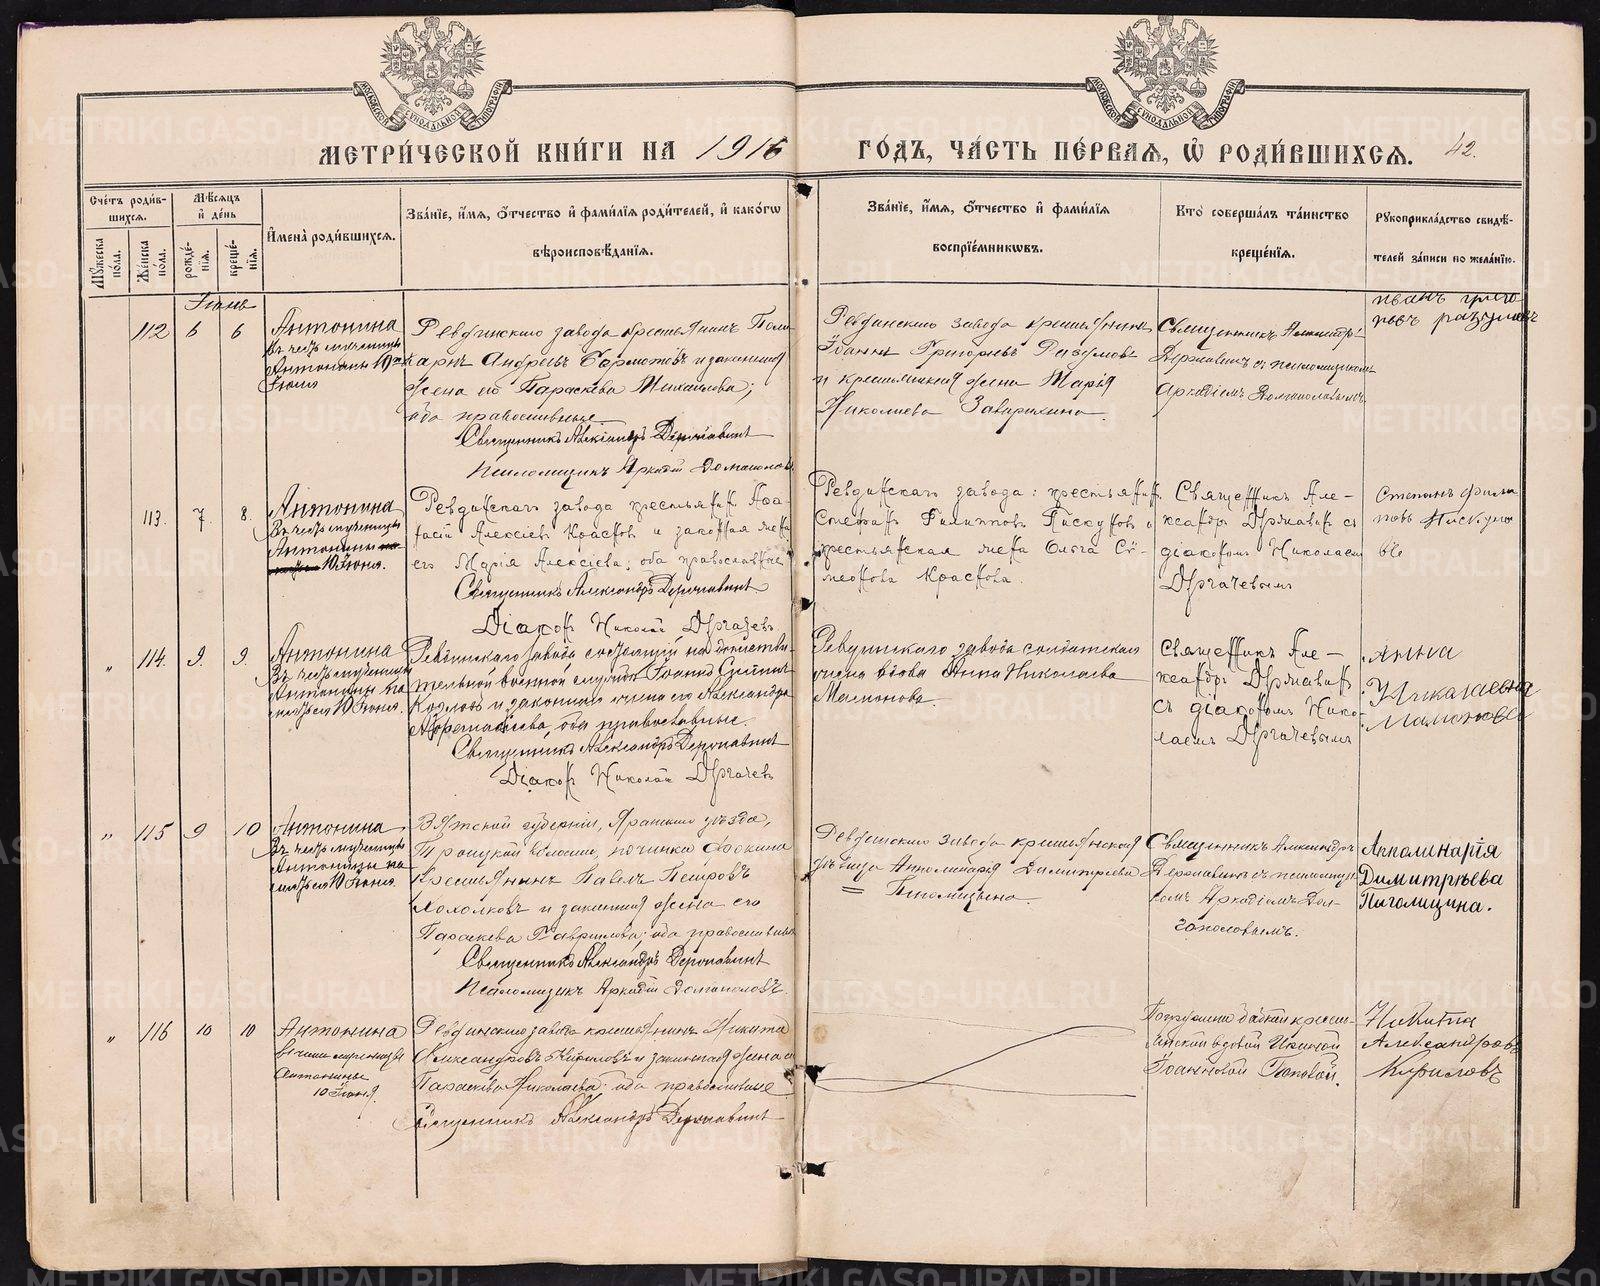 МОСКОВСКОЙ СѴНОДАЛЬНОЙ ТИПОГРАФІИ
МОСКОВСКОЙ СѴНОДАЛЬНОЙ ТИПОГРАФІИ
МЕТРИ́ЧЕСКОЙ КНИ́ГИ НА 1916
ГО́ДЪ, ЧА́СТЬ ПЕ́РВАѦ, Ѡ҆ РОДИ́ВШИХСѦ. 42.
Сче́тъ роди́в-
шихсѧ.
Мꙋ́жеска по́ла.
Же́нска по́ла.
Мѣ́сѧцъ
и҆ де́нь
рожде́-
нїѧ.
креще́-
нїѧ.
И҆мена̀ роди́вшихсѧ.
Зва́нїе, и҆́мѧ, ѻ҆́тчество и҆ фами́лїѧ роди́телей, и҆ како́гѡ
вѣроисповѣ́данїѧ.
Зва́нїе, и҆́мѧ, ѻ҆́тчество и҆ фами́лїѧ
воспрїе́мникѡвъ.
Кто̀ соверша́лъ та́инство
креще́нїѧ.
Рꙋкоприкла́дство свидѣ́-
телей за́писи по жела́нїю.
Іюнь
112 6 6
Антонина
Въ честь мученицы
Антонины 10го
Іюня
Ревдинскаго завода крестьянинъ Поли-
карпъ Андреевъ и законная
жена его Параскева Михаилова;
оба православные
Священникъ Александръ Державинъ
Псаломщикъ Аркадій
Ревдинскаго завода крестьянинъ
Іоаннъ Григорьевъ Разумовъ
и крестьянская жена Марія
Николаева Заварихина.
Священникъ Александръ
Державинъ съ псаломщикомъ
Аркадіемъ
иванъ григо
рьевъ разумовъ
113. 7. 8.
Антонина
Въ честь мученицы
Антонины
10 Іюня.
Ревдинскаго завода крестьянинъ Афа-
насій Алексіевъ Красновъ и законная жена
его Марія Алексіева, оба православные
Священникъ Александръ Державинъ
Діаконъ Николай Дергачевъ
Ревдинскаго завода: крестьянинъ
Стефанъ Филипповъ Пискуновъ и
крестьянская жена Ольга Сѵ-
меонова Краснова.
Священникъ Але-
ксандръ Державинъ съ
діакономъ Николаемъ
Дергачевымъ
Степанъ Фили
повъ Пискуно
въ
" 114. 9. 9.
Антонина
Въ честь мученицы
Антонины па-
мять ея 10 Іюня.
Ревдинскаго завода состоящій на дѣйстви-
тельной военной службѣ Іоаннъ
Козловъ и законная жена его Александра
оба православные.
Священникъ Александръ Державинъ
Діаконъ Николай Дергачевъ
Ревдинскаго завода солдатская
жена вдова Анна Николаева
Мамонова.
Священникъ Але-
ксандръ Державинъ
съ діакономъ Нико-
лаемъ Дергачевымъ
Анна
Николаевна
Мамонова
" 115 9 10
Антонина
Въ честь мученицы
Антонины па-
мять ея 10 Іюня.
Вятской губерніи, Яранскаго уѣзда,
Троицкой волости, починка Фокина
крестьянинъ Павелъ Петровъ
Хохолковъ и законная жена его
Параскева Гаврилова; оба православные
Священникъ Александръ Державинъ
Псаломщикъ Аркадій Долгополовъ.
Ревдинскаго завода крестьянская
дѣвица Апполинарія Димитріева
Пигомицына.
Священникъ Александръ
Державинъ съ псаломщи-
комъ Аркадіемъ Дол-
гополовымъ.
Апполинарія
Димитріева
Пигомицина.
" 116 10 10
Антонина
въ честь мученицы
Антонины
10 Іюня.
Ревдинскаго завода крестьянинъ Никита
Александровъ Кириловъ и законная жена его
Параскева Николаева: оба православные
Священникъ Александръ Державинъ
Погружена бабкой кресть-
янской вдовой Ириной
Іоанновой Поповой.
Никита
Александровъ
Кириловъ
METRIKI.GASO-URAL.RU